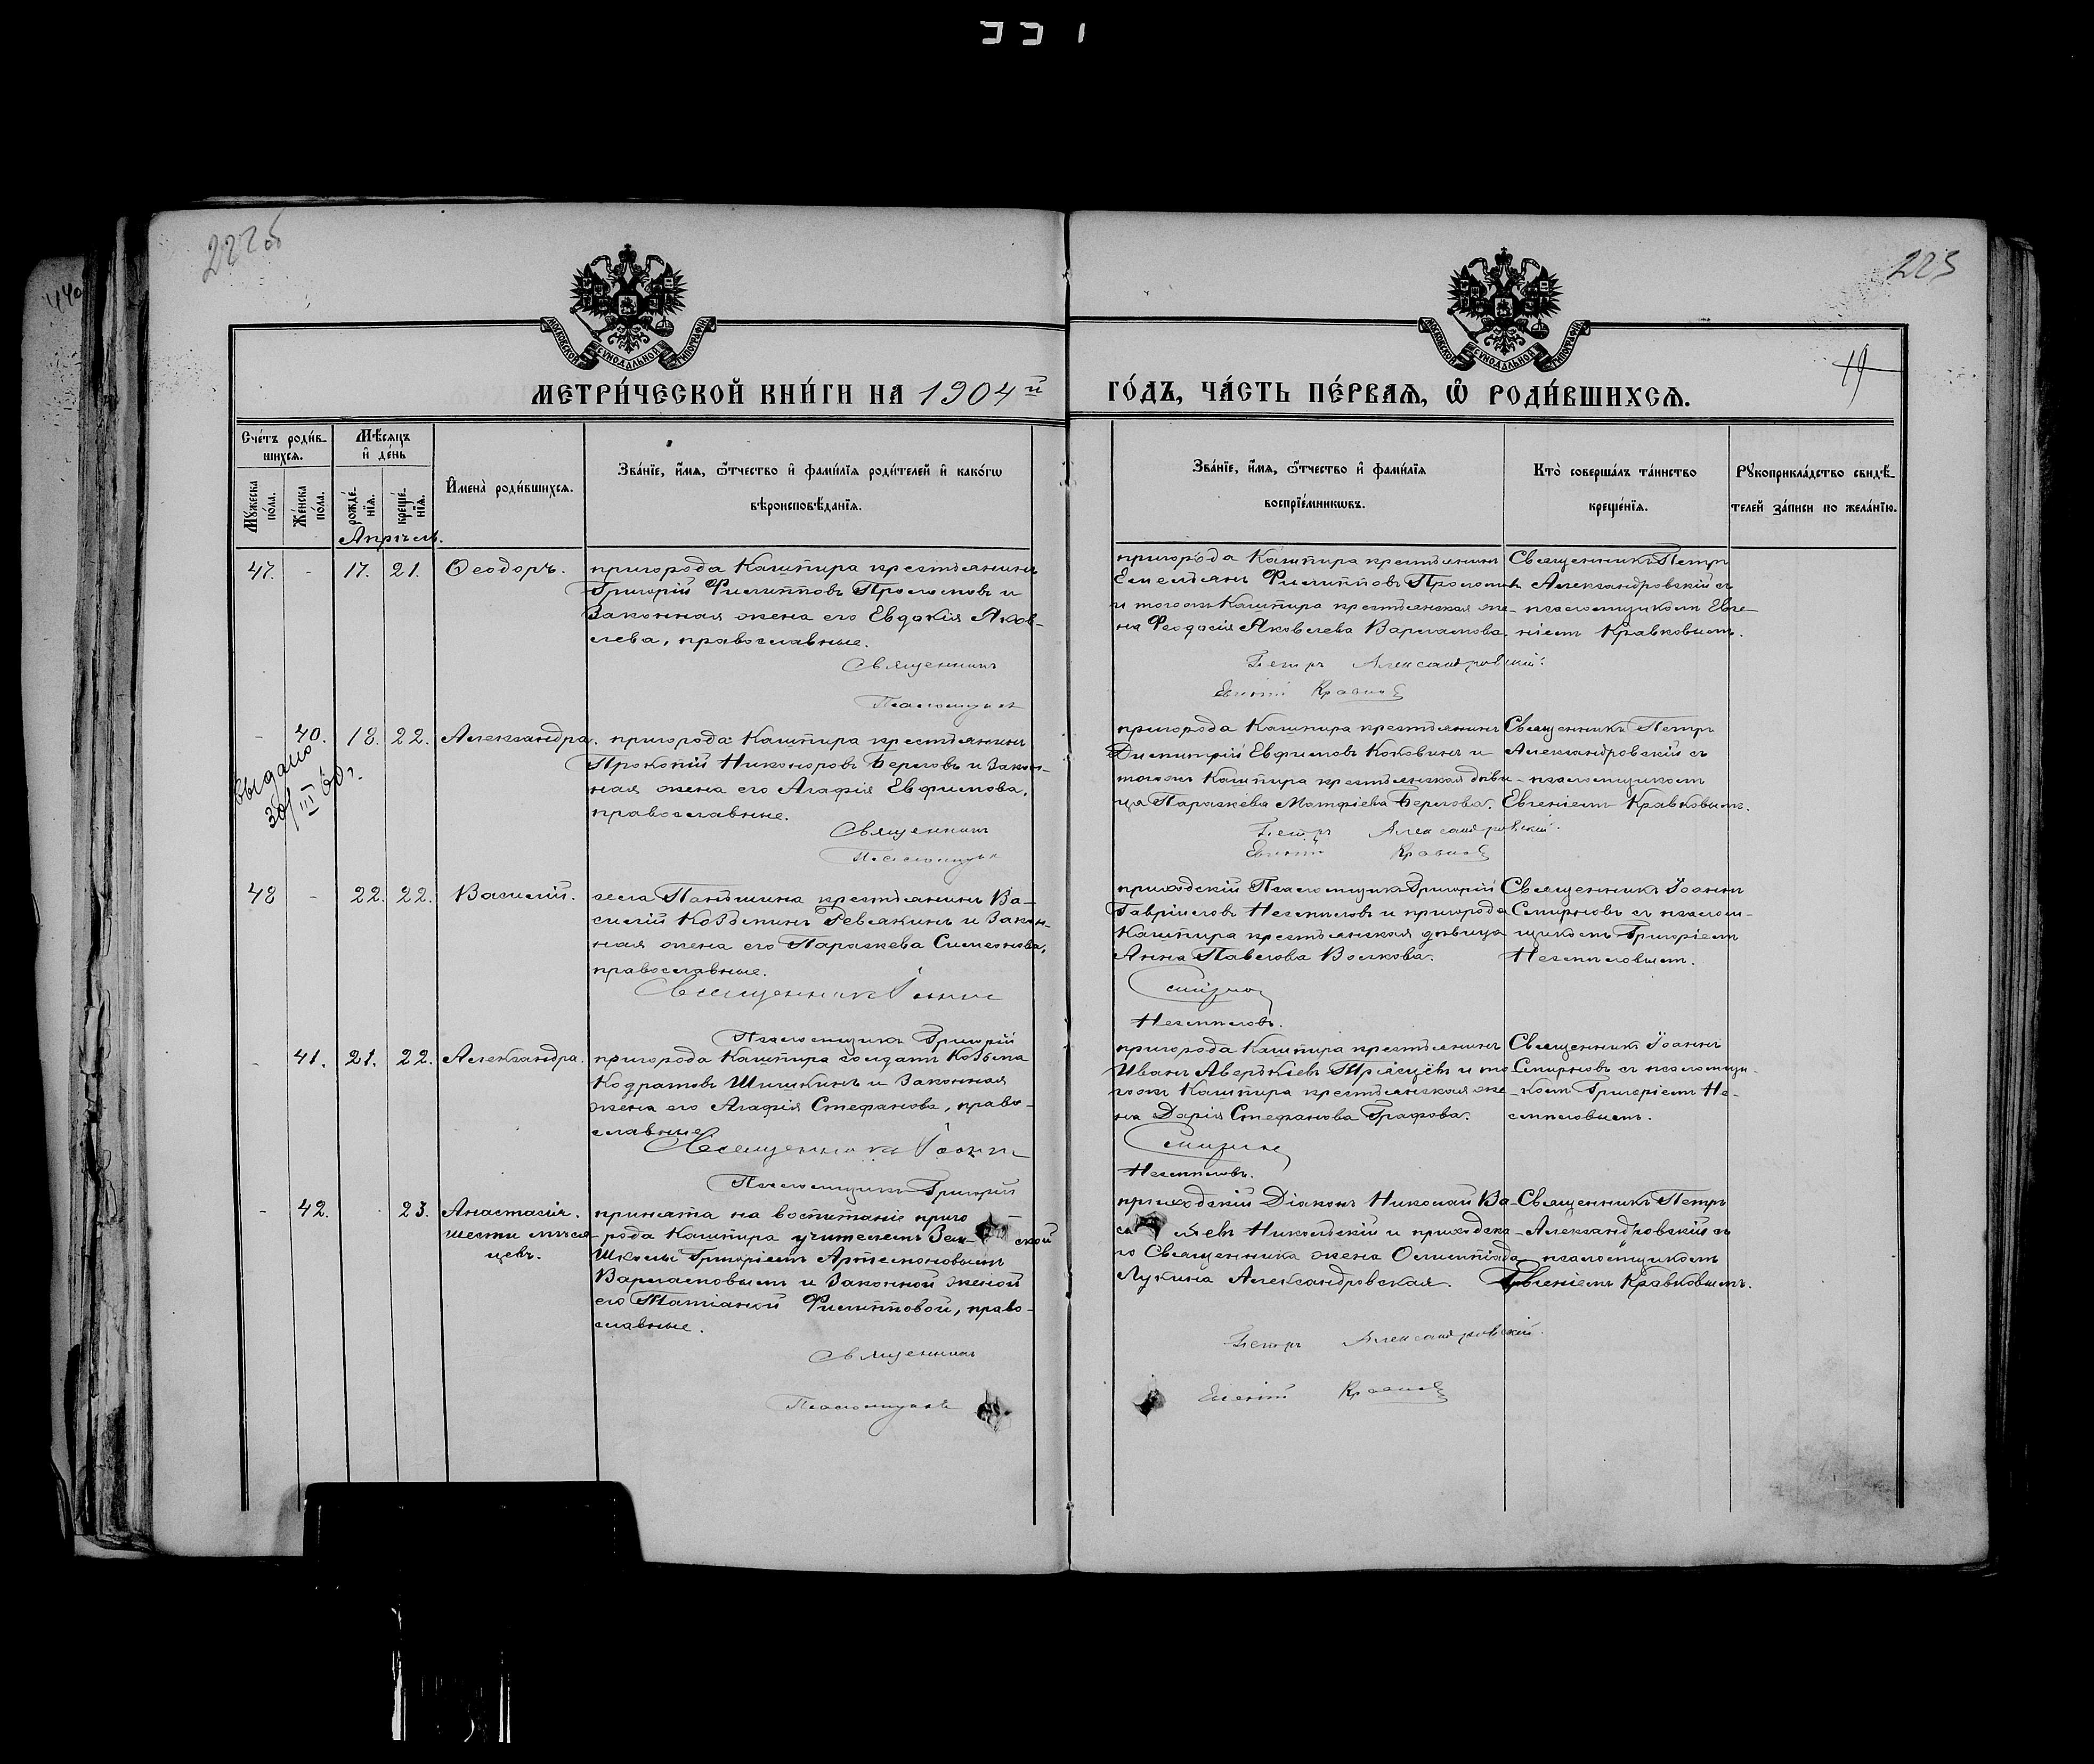 331
222 об
223
440
19
МОСКОВСКОЙ СѴНОДАЛЬНОЙ ТИПОГРАФІИ
МОСКОВСКОЙ СѴНОДАЛЬНОЙ ТИПОГРАФІИ
МЕТРИ́ЧЕСКОЙ КНИ́ГИ НА 1904й ГО́ДЪ, ЧА́СТЬ ПЕ́РВАѦ, Ѿ РОДИ́ВШИХСѦ.
Сче́тъ роди́в-
шихсѧ.
Мꙋ́жеска по́ла.
Же́нска по́ла.
Мѣ́сѧцъ
и҆ де́нь
рожде́-
нїѧ.
креще́-
нїѧ.
И҆мена̀ роди́вшихсѧ.
Зва́нїе, и҆́мѧ, ѻ҆́тчество и҆ фами́лїѧ роди́телей и҆ како́гѡ
вѣроисповѣ́данїѧ.
Зва́нїе, и҆́мѧ, ѻ҆́тчество и҆ фами́лїѧ
воспрїе́мникѡвъ.
Кто̀ соверша́лъ та́инство
креще́нїѧ.
Рꙋкоприкла́дство свидѣ́-
телей за́писи по жела́нїю.
Апрѣль.
47. - 17. 21. Ѳеодоръ.
пригорода Кашпира крестьянинъ
Григорій Филипповъ Прологовъ и
законная жена его Евдокія Яков-
лева, православные.
Священникъ
Псаломщикъ
пригорода Кашпира крестьянинъ
Емельянъ Филипповъ
и тогожъ Кашпира крестьянская же-
на Ѳеодосія Яковлева Варламова.
Петръ Александровскій.
Евгеній Кравковъ
Священникъ Петръ
Александровскій съ
псаломщикомъ Евге-
ніемъ Кравковымъ.
- 40. 18. 22. Александра.
выдано
30/III 60 г.
пригорода Кашпира крестьянинъ
Прокопій Никоноровъ Береговъ и закон-
ная жена его Агафія Евфимова,
православные.
Священникъ
Псаломщикъ
пригорода Кашпира крестьянинъ
Димитрій Евфимовъ Коковинъ и
тогожъ Кашпира крестьянская дѣви-
ца Параскева Матфіева Берегова.
Петръ Александровскій.
Евгеній Кравковъ
Священникъ Петръ
Александровскій съ
псаломщикомъ
Евгеніемъ Кравковымъ.
48 - 22. 22. Василій.
села Паньшина крестьянинъ Ва-
силій Козьминъ Ревякинъ и закон-
ная жена его Параскева Симеонова,
православные.
Священникъ Іоаннъ
Псаломщикъ Григорій
приходскій Псаломщикъ Григорій
Гавріиловъ Несмѣловъ и пригорода
Кашпира крестьянская дѣвица
Анна Павлова Волкова.
Смирновъ
Несмѣловъ.
Священникъ Іоаннъ
Смирновъ съ псалом-
щикомъ Григоріемъ
Несмѣловымъ.
- 41. 21. 22. Александра.
пригорода Кашпира солдатъ Козьма
Кодратовъ Шишкинъ и законная
жена его Агафія Стефанова, право-
славные.
Священникъ Іоаннъ
Псаломщикъ Григорій
пригорода Кашпира крестьянинъ
Иванъ Аверькіевъ и то-
гожъ Кашпира крестьянская же-
на Дарія Стефанова Графова.
Смирновъ
Несмѣловъ.
Священникъ Іоаннъ
Смирновъ съ псаломщи-
комъ Григоріемъ Не-
смѣловымъ.
- 42. - 23. Анастасія.
шести мѣся-
цевъ.
принята на воспитаніе приго-
рода Кашпира учителемъ Зем-ской
Школы Григоріемъ Артемоновымъ
Варламовымъ и законной женой
его Татіаной Филипповой, право-
славные.
Священникъ
Псаломщикъ
приходскій Діаконъ Николай Ва-
сильевъ Никольскій и приходска-
го Священника жена Олимпіада
Лукина Александровская.
Петръ Александровскій.
Евгеній Кравковъ
Священникъ Петръ
Александровскій съ
псаломщикомъ
Евгеніемъ Кравковымъ.